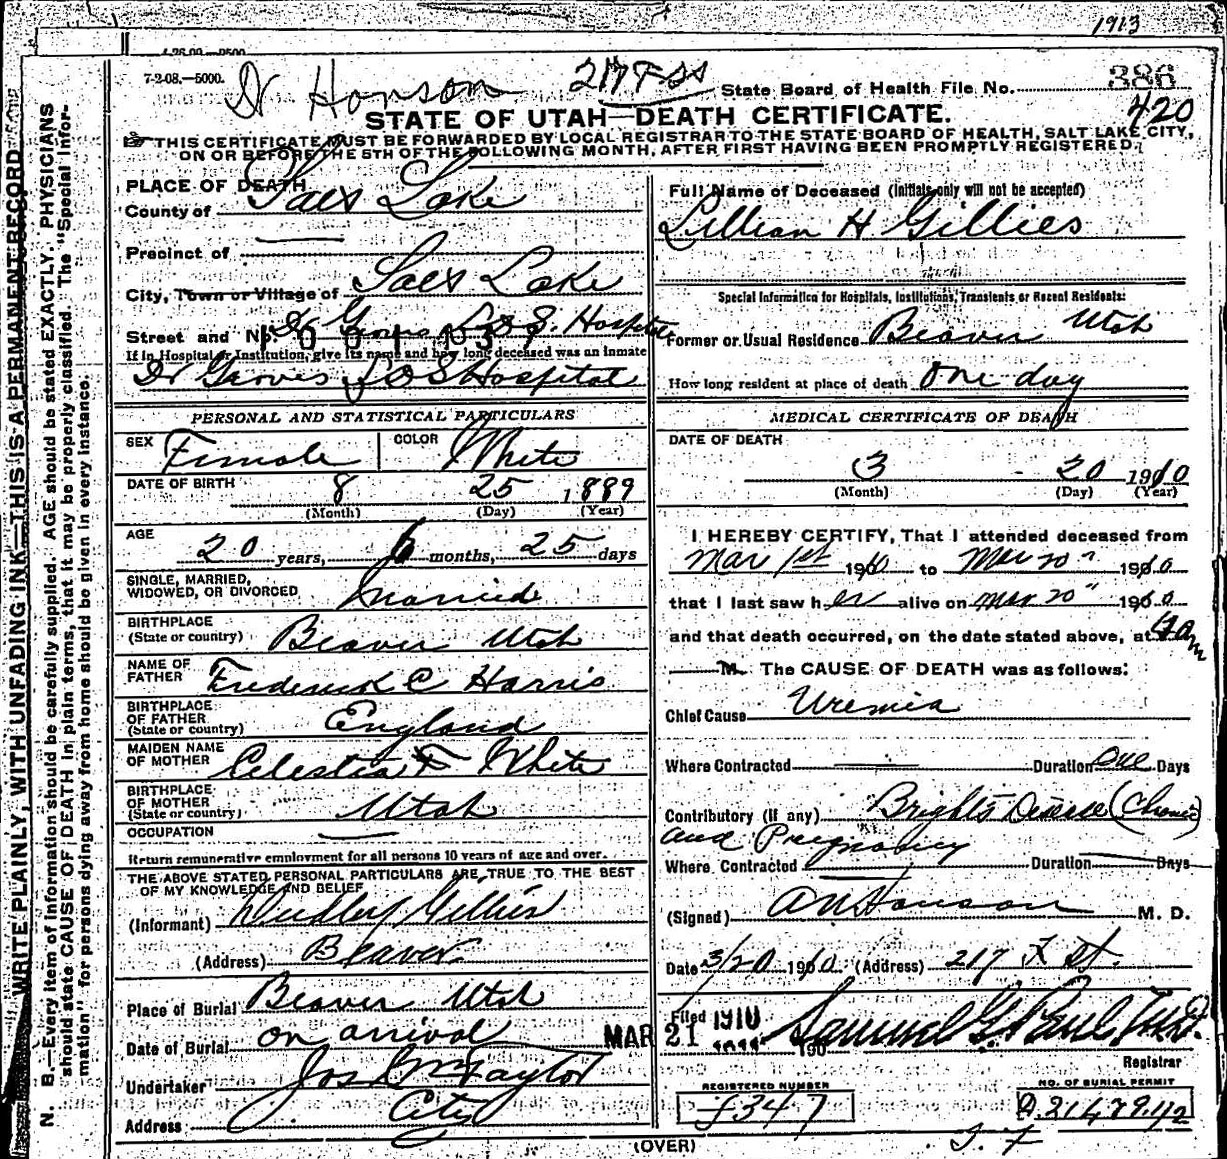 1913
4-26-09—9500
7-2-08.—5000.
Dr Hanson 217 F ss
State Board of Health File No. 386
420
STATE OF UTAH—DEATH CERTIFICATE.
THIS CERTIFICATE MUST BE FORWARDED BY LOCAL REGISTRAR TO THE STATE BOARD OF HEALTH, SALT LAKE CITY,
ON OR BEFORE THE 5TH OF THE FOLLOWING MONTH, AFTER FIRST HAVING BEEN PROMPTLY REGISTERED.
WRITE PLAINLY, WITH UNFADING INK—THIS IS A PERMANENT RECORD
N. B.—Every item of Information should be carefully supplied. AGE should be stated EXACTLY. PHYSICIANS
should state CAUSE OF DEATH in plain terms, that it may be properly classified. The "Special Infor-
mation" for persons dying away from home should be given in every instance.
PLACE OF DEATH
County of Salt Lake
Precinct of
City, Town or Village of Salt Lake
Street and No. Dr Groves L D S. Hospital
If in Hospital or Institution, give its name and how long deceased was an inmate
Dr Groves L D S Hospital
PERSONAL AND STATISTICAL PARTICULARS
SEX Female COLOR White
DATE OF BIRTH 8 25 1889
(Month) (Day) (Year)
AGE 20 years, 6 months, 25 days
SINGLE, MARRIED,
WIDOWED, OR DIVORCED Married
BIRTHPLACE
(State or country) Beaver Utah
NAME OF
FATHER Frederick C Harris
BIRTHPLACE
OF FATHER
(State or country) England
MAIDEN NAME
OF MOTHER Celestia F White
BIRTHPLACE
OF MOTHER
(State or country) Utah
OCCUPATION
Return remunerative employment for all persons 10 years of age and over.
THE ABOVE STATED PERSONAL PARTICULARS ARE TRUE TO THE BEST
OF MY KNOWLEDGE AND BELIEF
(Informant) Dudley Gillies
(Address) Beaver
Place of Burial Beaver Utah
Date of Burial on arrival
Undertaker Jos Wm Taylor
Address City
Full Name of Deceased (Initials only will not be accepted)
Lillian H Gillies
Special Information for Hospitals, Institutions, Transients or Recent Residents:
Former or Usual Residence Beaver Utah
How long resident at place of death One day
MEDICAL CERTIFICATE OF DEATH
DATE OF DEATH
3 20 1910
(Month) (Day) (Year)
I HEREBY CERTIFY, That I attended deceased from
Mar 1st 1910 to Mar 20" 1910
that I last saw her alive on Mar 20" 1910
and that death occurred, on the date stated above, at
M. The CAUSE OF DEATH was as follows:
Chief Cause Uremia
Where Contracted Duration one Days
Contributory (If any) Brights Disease (Chronic)
and Pregnancy
Where Contracted Duration Days
(Signed) A N Hanson M. D.
Date 3/20 1910 (Address) 217 F St.
MAR 21 1910
Filed 190 Samuel G. Paul, M.D.
Registrar
REGISTERED NUMBER
J347
NO. OF BURIAL PERMIT
A.21479.1/2
(OVER)